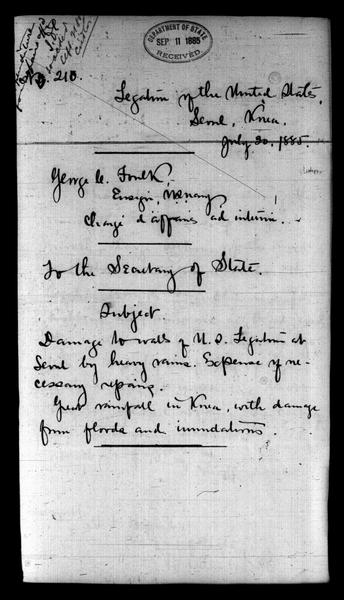 DEPARTMENT OF STATE
SEP 11 1885
RECEIVED
No. 210.
Legation of the United States,
Seoul, Korea,
July 20, 1885.
George C. Foulk,
Ensign, U.S. Navy
Chargé d'affaires ad interim.
To the Secretary of State.
Subject.
Damage to walls of U.S. Legation at
Seoul by heavy rains. Expense of ne-
cessary repairing.
Great rainfall in Korea, with damage
from floods and inundations.